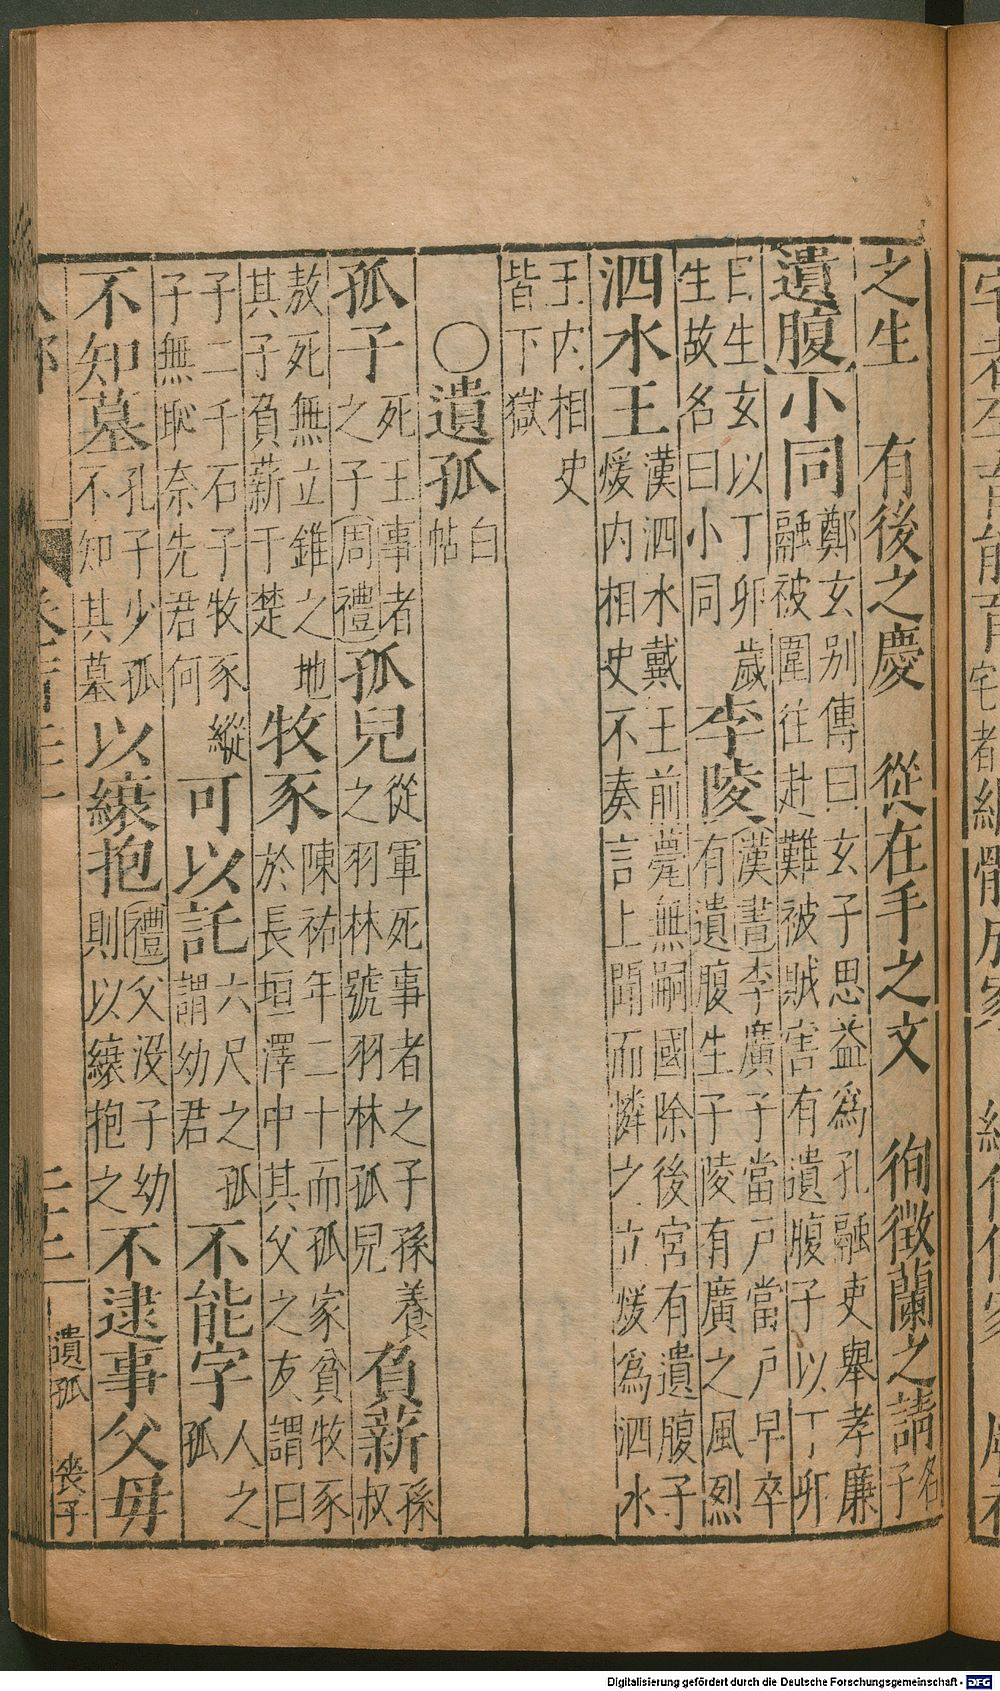 之生　有後之慶　從在手之文　徇徵蘭之請名子
遺腹小同鄭玄別傳曰玄子思益爲孔融吏舉孝廉融被圍往赴難被賊害有遺腹子以丁卯
日生玄以丁卯歲生故名曰小同李陵漢書李廣子當戶當戶早卒有遺腹生子陵有廣之風烈
泗水王漢泗水戴王前薨無嗣國除後宮有遺腹子煖内相史不奏言上聞而憐之立煖爲泗水
王内相史皆下獄
〇遺孤白帖
孤子死王事者之子周禮孤兒從軍死事者之子孫養之羽林號羽林孤兒負薪孫叔
敖死無立錐之地其子負薪于楚牧豕陳祐年二十而孤家貧牧豕於長垣澤中其父之友謂曰
子二千石子牧豕縱子無恥奈先君何可以託六尺之孤謂幼君不能字人之孤
不知墓孔子少孤不知其墓以繈抱禮父没子幼則以繈抱之不逮事父毋
遺孤　喪子
宅都
體成家
Digitalisierung gefördert durch die Deutsche Forschungsgemeinschaft - DFG